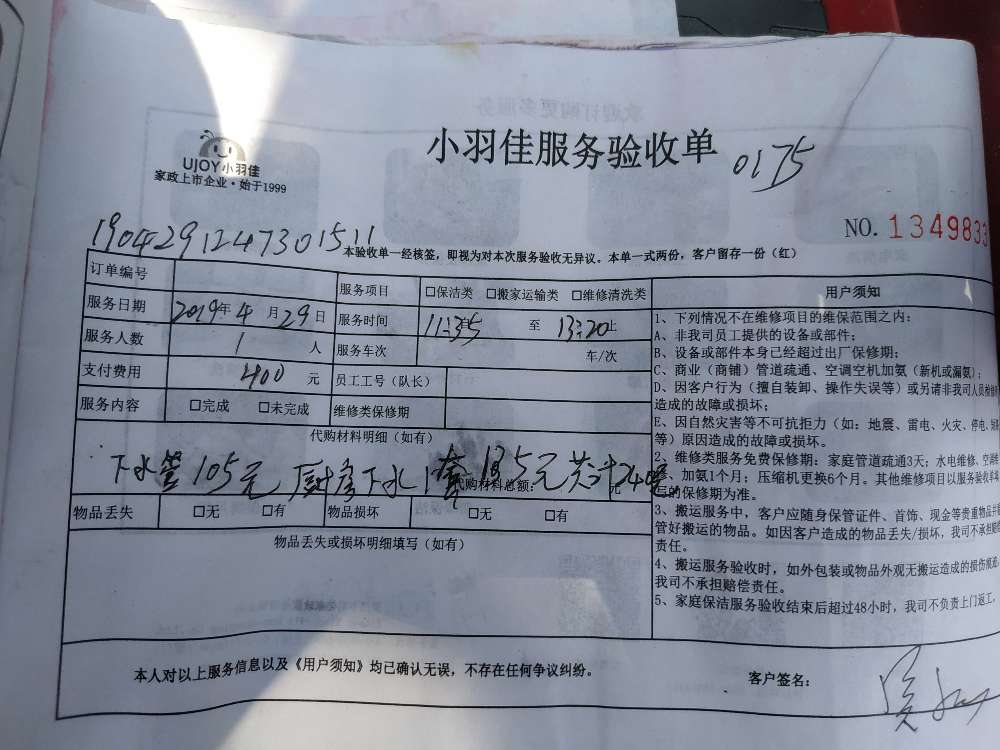 小羽佳服务验收单
0175
UJOY小羽佳
家政上市企业·始于1999
NO. 1349833
190429124730 1511
本验收单一经核签，即视为对本次服务验收无异议。本单一式两份，客户留存一份（红）
订单编号
服务项目 □保洁类 □搬家运输类 □维修清洗类
服务日期 2019年4月29日
服务时间 11:35 至 13:20止
服务人数 1 人
服务车次 车/次
支付费用 400 元
员工工号（队长）
服务内容 □完成 □未完成
维修类保修期
代购材料明细（如有）
下水管105元 厨房下水1套135元 共计240元
代购材料总额： 元
物品丢失 □无 □有
物品损坏 □无 □有
物品丢失或损坏明细填写（如有）
用户须知
1、下列情况不在维修项目的维保范围之内：
A、非我司员工提供的设备或部件；
B、设备或部件本身已经超过出厂保修期；
C、商业（商铺）管道疏通、空调空机加氨（新机或漏氨）；
D、因客户行为（擅自装卸、操作失误等）或另请非我司人员检修
造成的故障或损坏；
E、因自然灾害等不可抗拒力（如：地震、雷电、火灾、停电、
等）原因造成的故障或损坏。
2、维修类服务免费保修期：家庭管道疏通3天；水电维修、空调
、加氨1个月；压缩机更换6个月。其他维修项目以服务验收单
的保修期为准。
3、搬运服务中，客户应随身保管证件、首饰、现金等贵重物品并
管好搬运的物品。如因客户造成的物品丢失/损坏，我司不承担赔偿
责任。
4、搬运服务验收时，如外包装或物品外观无搬运造成的损伤痕迹，
我司不承担赔偿责任。
5、家庭保洁服务验收结束后超过48小时，我司不负责上门返工，
本人对以上服务信息以及《用户须知》均已确认无误，不存在任何争议纠纷。
客户签名：